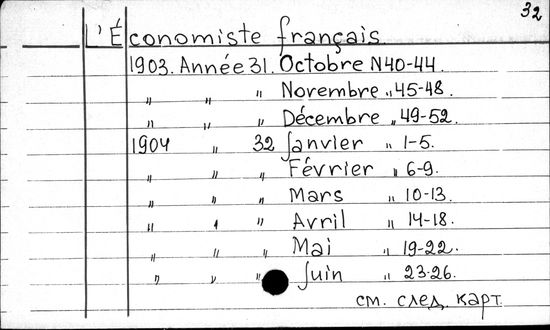 32
L'Économiste français.
1903. Année 31. Octobre N40-44.
" " " Novembre " 45-48.
" " " Décembre " 49-52.
1904 " 32 Janvier " 1-5.
" " " Février " 6-9.
" " " Mars " 10-13.
" " " Avril " 14-18.
" " " Mai " 19-22.
" " " Juin " 23-26.
см. след. карт.